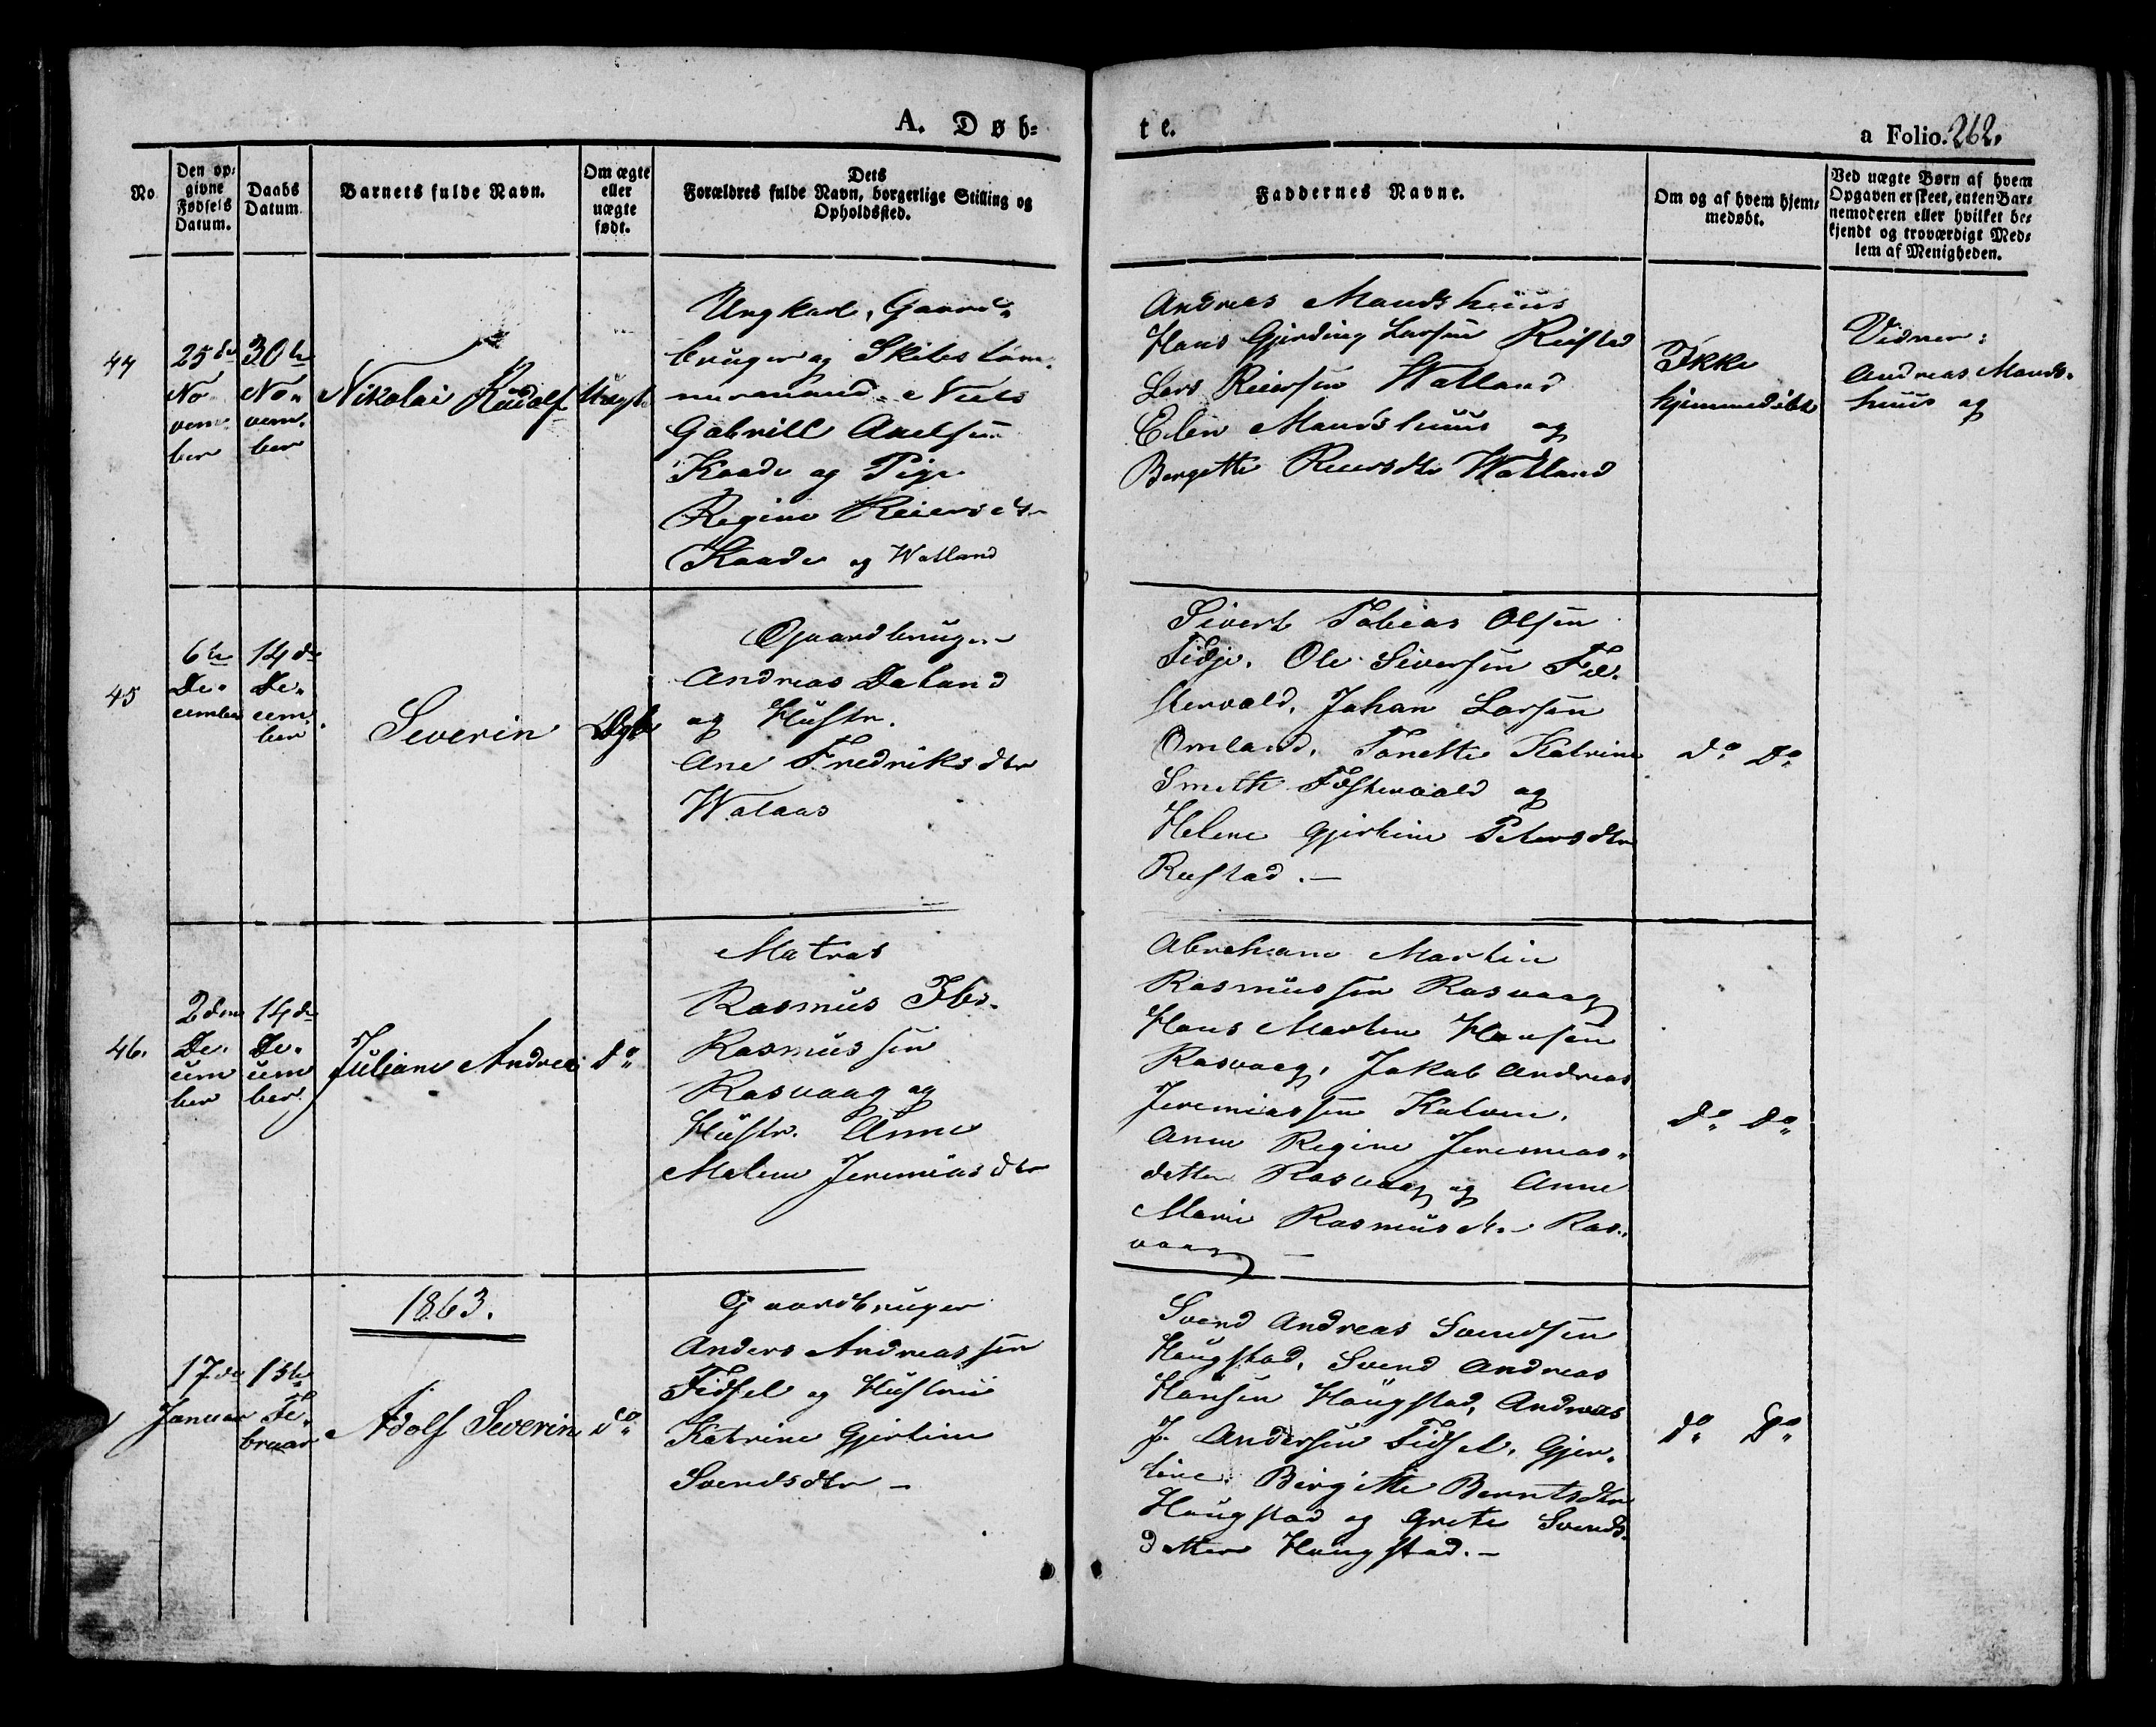 A. Døb=
te.
a Folio. 262.
No.
Den op=
givne
Fødsels
Datum.
Daabs
Datum.
Barnets fulde Navn.
Om ægte
eller
uægte
født.
Dets
Forældres fulde Navn, borgerlige Stilling og
Opholdssted.
Faddernes Navne.
Om og af hvem hjem=
medøbt.
Ved uægte Børn af hvem
Opgaven er skeet, enten Bar=
nemoderen eller hvilket be=
kjendt og troværdigt Med=
lem af Menigheden.
44
25de
No
vem
ber
30te
No
vem
ber
Nikolai Rudolf
Uægte
Ungkarl, Gaard
bruger og
Niels
Gabriell Axelsen
Kaade og Pige
Regine Reiersdtr
Kaade og Watland
Andreas Mandshuus
Hans Gjerding Larsen Reistad
Lars Reiersen Watland
Elen Mandshuus og
Bergette Reiersdtr Watland
Ikke
hjemmedøbt
Vidner:
Andreas Mands
huus og
45
6te
De
cember
14de
De
cem
ber
Severin
Ægte
Gaardbruger
Andreas Daland
og Hustr.
Ane Fredriksdtr
Walaas
Sivert Tobias Olsen
Tidje, Ole Siversen Fo
stervold, Johan Larsen
Omland, Tonette Katrine
Smith Fostervold og
Helene Gjertine Petersdtr
Reistad.—
do do
46.
2den
De
cem
ber
14de
De
cem
ber
Juliane Andrea
do
Matros
Rasmus Ibs.
Rasmussen
Rasvaag og
Hustr. Anne
Malene Jeremiasdtr
Abraham Martin
Rasmussen Rasvaag
Hans Martin Hansen
Rasvaag, Jakob Andreas
Jeremiassen
Anne Regine Jeremias
datter Rasvaag og Anne
Marie Rasmusdtr Ras
vaag —
do do
1863.
1
17de
Januar
15de
Fe
bruar
Adolf Severin
do
Gaardbruger
Anders Andreassen
Fidsel og Hustrue
Katrine Gjertine
Svendsdtr —
Svend Andreas Svendsen
Haugstad, Svend Andreas
Hansen Haugstad, Andreas
J. Andersen Fidsel, Gjer
tine Birgitte Berntsdtr
Haugstad og Grete Svends
datter Haugstad.—
do do